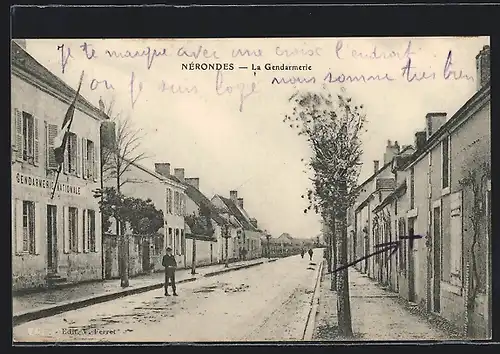 Je te marque avec une croix l'endroit
NÉRONDES — La Gendarmerie
où je suis logé nous somme tres bien
GENDARMERIE NATIONALE
Edit. V. Perret